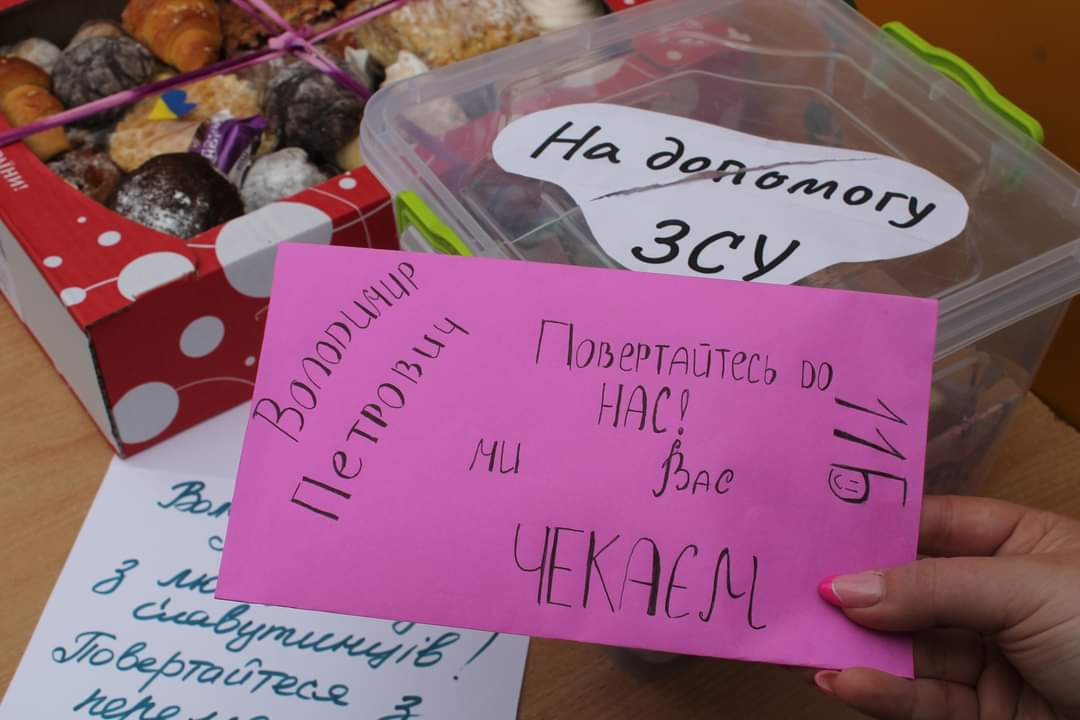 На допомогу
ЗСУ
Володимир
Петрович
Повертайтесь до
НАС!
ми Вас
ЧЕКАЄМ
11Б
з
славутинців!
Повертайтеся з